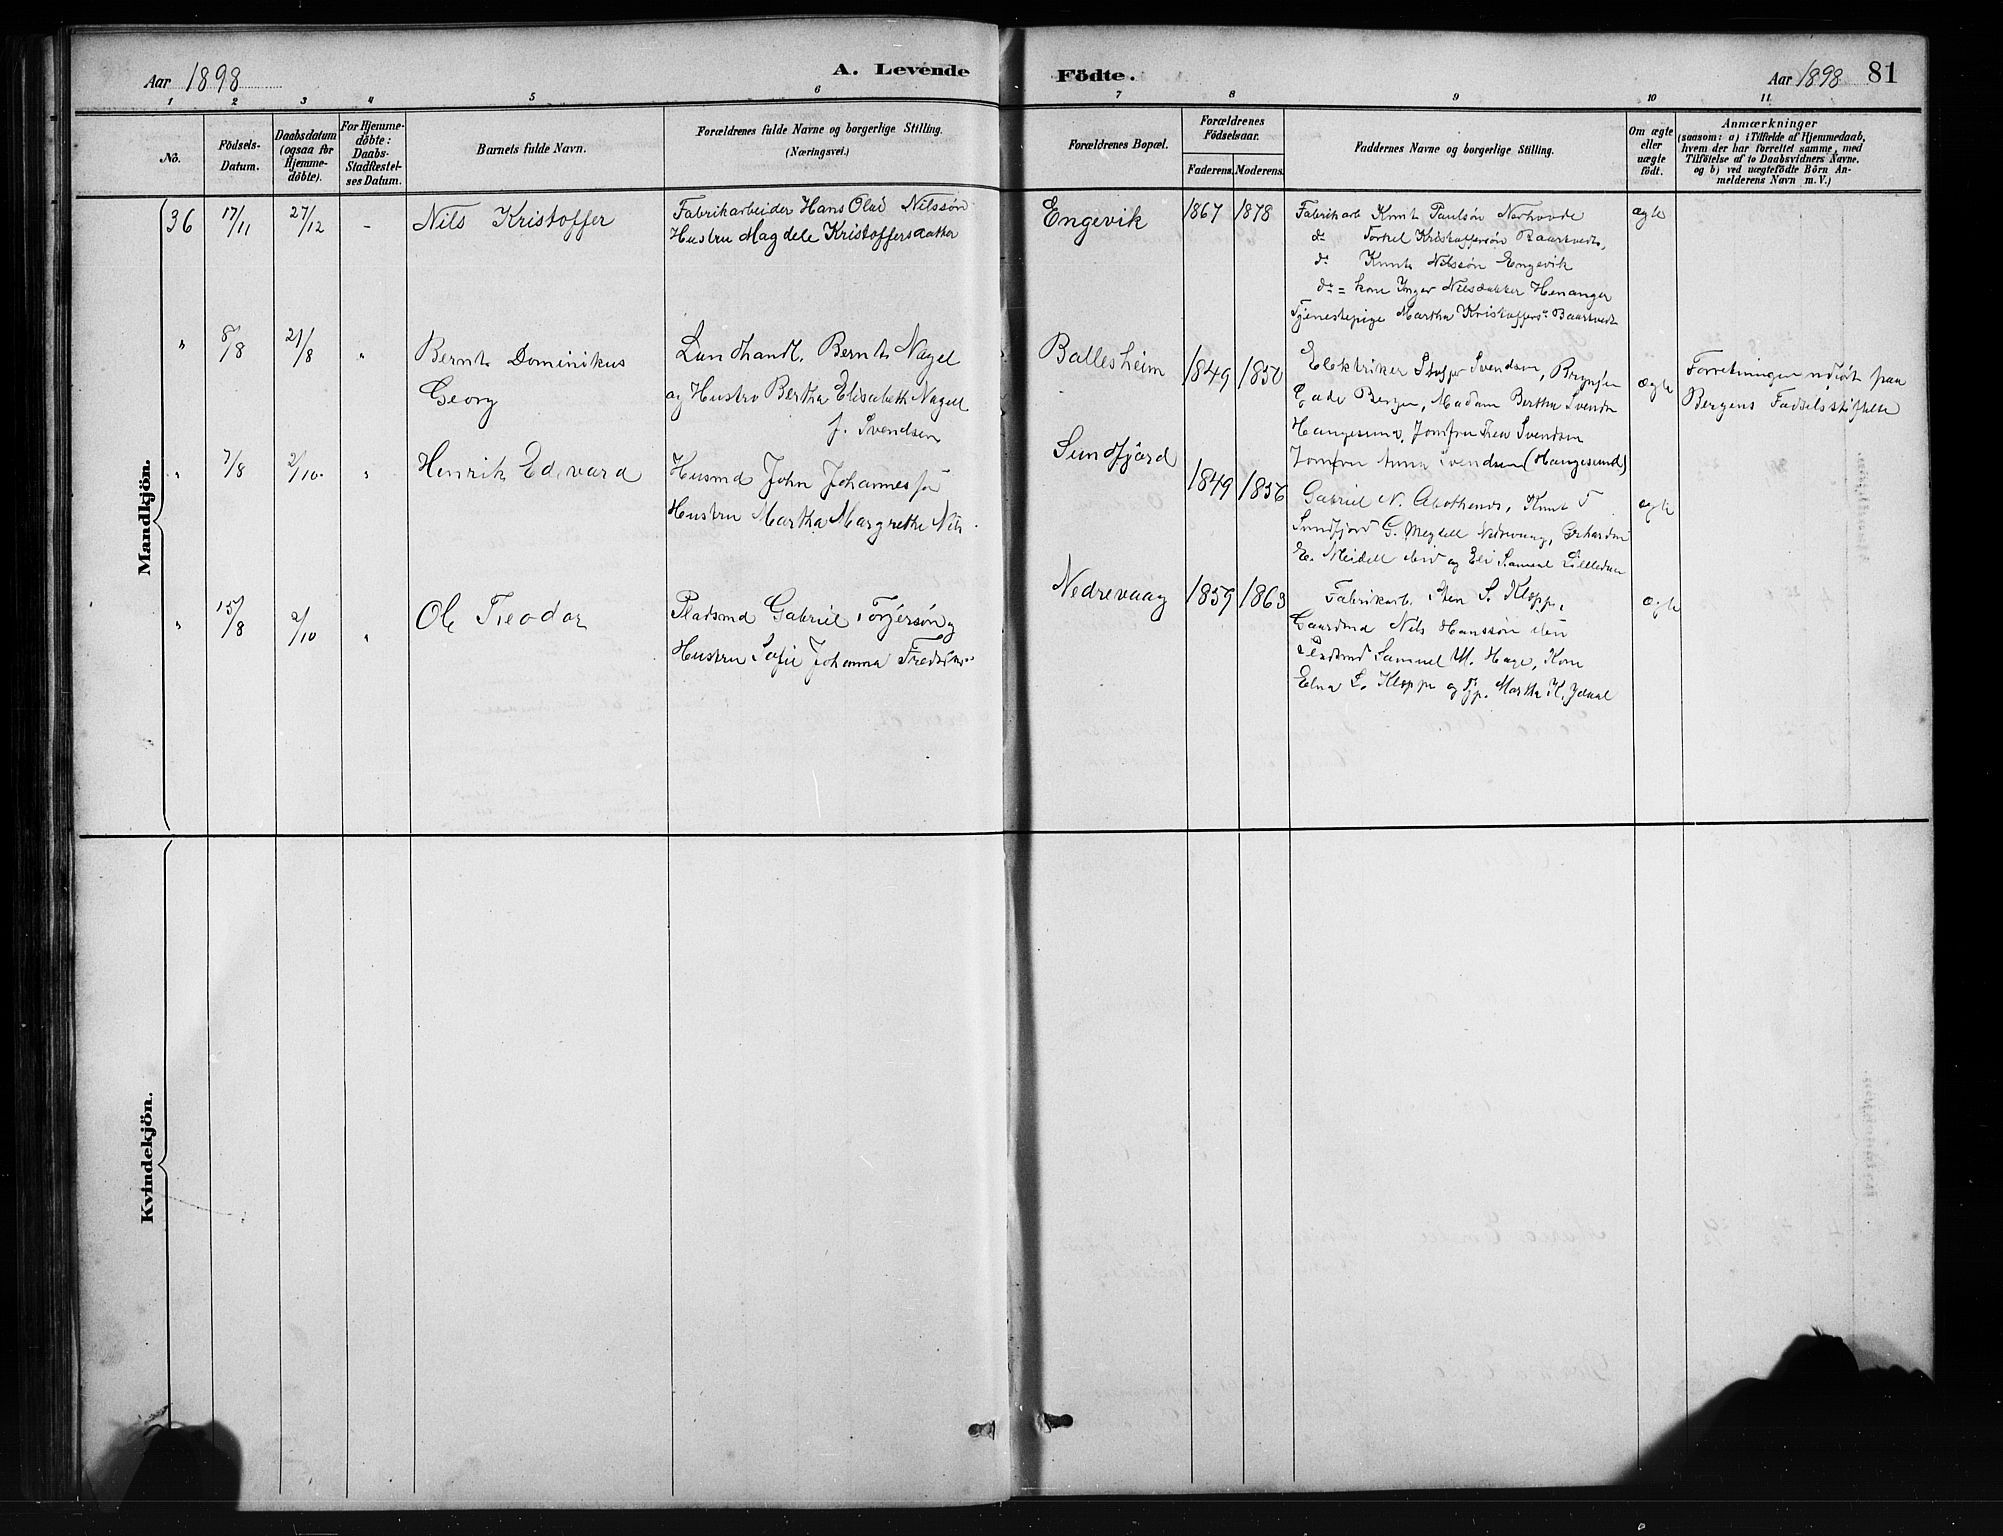 Aar 1898
A. Levende
Födte.
Aar 1898 81
1 2 3 4 5 6 7 8 9 10 11
No.
Födsels-Datum.
Daabsdatum (ogsaa for Hjemmedöbte).
For Hjemmedöbte: Daabs-Stadfæstelses Datum.
Barnets fulde Navn.
Forældrenes fulde Navne og borgerlige Stilling.
(Næringsvei.)
Forældrenes Bopæl.
Forældrenes Födselsaar.
Faderens. Moderens.
Faddernes Navne og borgerlige Stilling.
Om ægte eller uægte födt.
Anmærkninger
(saasom: a) i Tilfælde af Hjemmedaab,
hvem der har forrettet samme, med
Tilföielse af to Daabsvidners Navne.
og b) ved uægtefödte Börn An-
melderens Navn m. V.)
Mandkjön.
36 17/11 27/12 -
Nils Kristoffer
Fabrikarbeider Hans Olai Nilssøn
Hustru Magdele Kristoffersdatter
Engevik
1867 1878
Fabrikarb Knut Paulsøn
do Torkel Kristoffersøn
do Knut Nilssøn Engevik
do = kone Inger Nilsdatter Henanger
Tjenestepige Martha Kristoffers
ægte
" 8/8 21/8 "
Bernt Dominikus
Georg
Landhandl. Bernt Nagel
og Hustru Bertha Elisabeth Nagell
f. Svendsen
Ballesheim
1849 1850
Elektriker Svendsen,
Gade Bergen, Madam Bertha Svendsen
Haugesund, Jomfru Svendsen
Jomfru Anna Svendsen (Haugesund)
ægte
Forretningen udført paa
Bergens Fødselsstiftelse
" 7/8 2/10 "
Henrik Edevard
Husmd John Johannessøn
Hustru Martha Margrethe Nils
Sundfjord
1849 1856
Gabriel N. Knut T
Sundfjord G. Nedrevaag,
E. Meidell og Eli
ægte
" 15/8 2/10 "
Ole Teodor
Pladsmd Gabriel Torjersøn og
Hustru Sofie Johanna
Nedrevaag
1859 1863
Fabrikarb. Sten S. Kloppe,
Gaardmd Nils Hanssøn
Pladsmd Samuel M. Hage, Kone
Elna L. Kloppe og Tjp. Martha K.
ægte
Kvindekjön.